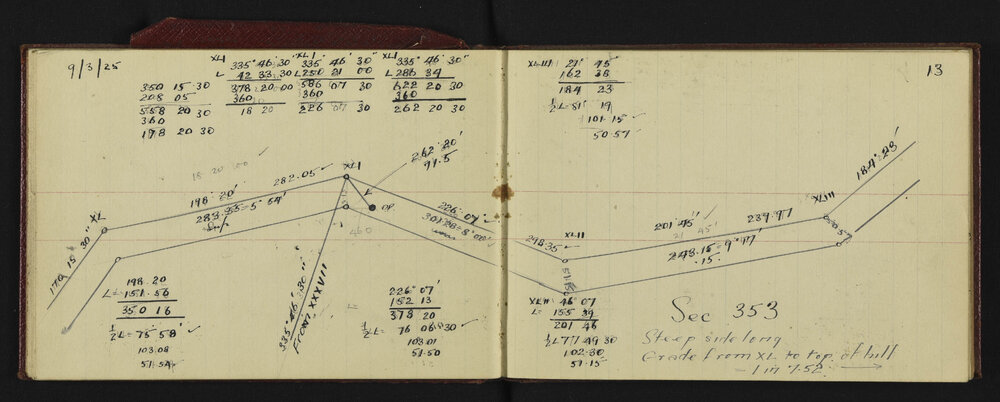 9/3/25
350 15 30
208 05
558 20 30
360
198 20 30
XLI 335° 46' 30"
L 42 33 30
378 20 00
360
18 20
XLI 335° 46' 30"
L 250 21 00
586 07 30
360
226 07 30
XLI 335° 46' 30"
L 286 34
622 20 30
360
262 20 30
XLIII 21° 45'
162 38
184 23
½L= 81° 19
101.15
50.57
13
18 20 00
262° 20'
91.5
XLI
282.05
198° 20'
L
OP
XL
170° 15' 30"
460
226° 07'
298.35
XLII
201° 45'
21 45'
239.97
XLIII
184° 23'
243.15 = 9° 17'
.15
51.15
50.57
335° 46' 30"
From XXXVII
198.20
L= 151.56
350 16
½L= 75° 58'
103.08
51.54
226° 07'
152 13
378 20
½L= 76 06 30
103.01
51.50
XLII 46° 07
L= 155 39
201 46
½L 77 49 30
102.30
51.15
Sec 353
Steep sidelong
Grade from XL to top of hill
- 1 in 7.52